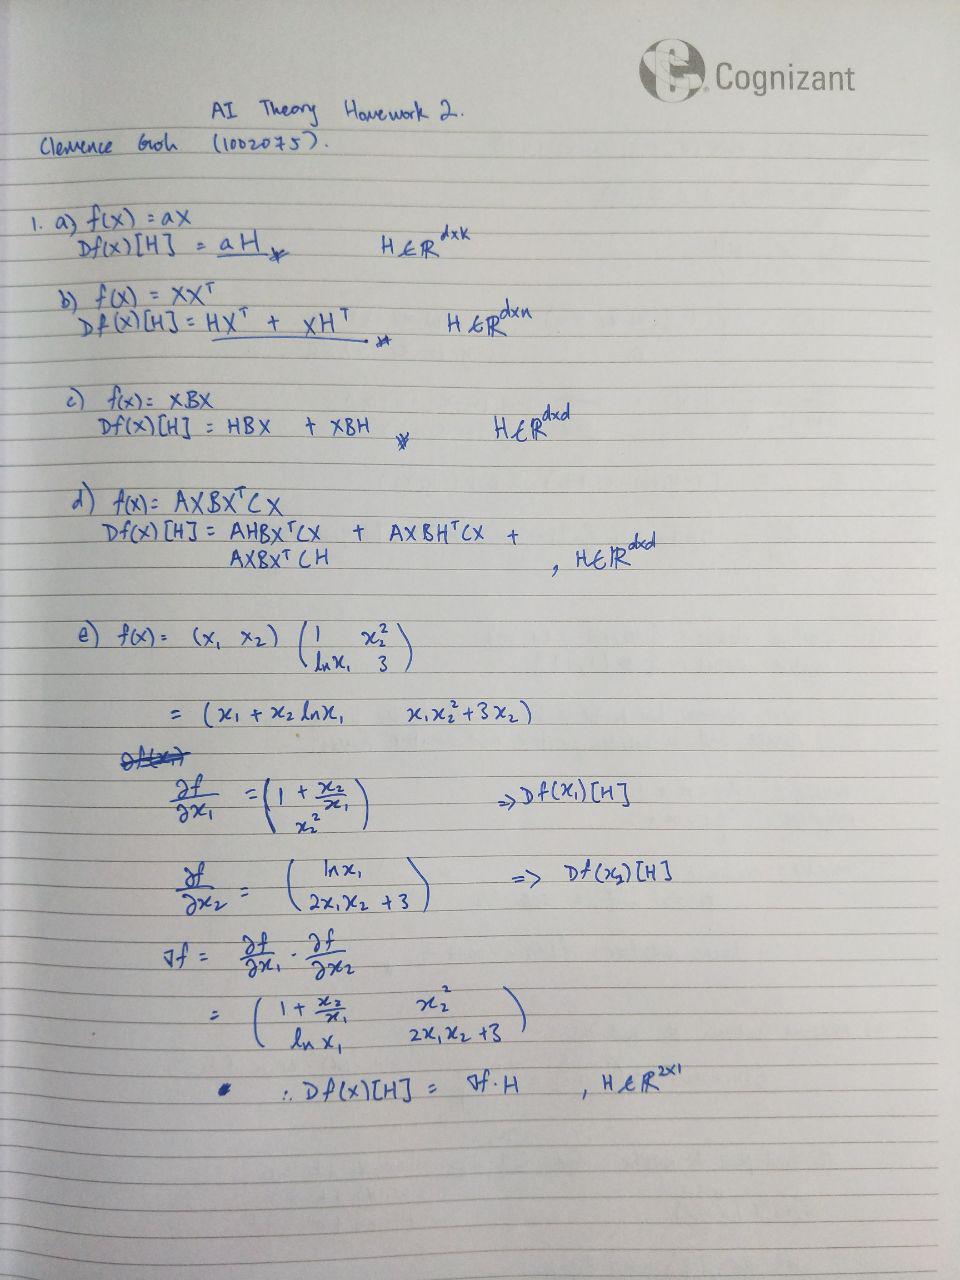 Cognizant
AI Theory Homework 2.
Clemence Goh (1002075).
1. a) f(x) = aX
Df(x)[H] = aH H ∈ ℝ^{d×k}
b) f(x) = XX^T
Df(x)[H] = HX^T + XH^T H ∈ ℝ^{d×n}
c) f(x) = XBX
Df(x)[H] = HBX + XBH H ∈ ℝ^{d×d}
d) f(x) = AXBX^TCX
Df(x)[H] = AHBX^TCX + AXBH^TCX +
AXBX^TCH , H ∈ ℝ^{d×d}
e) f(x) = (x₁ x₂) ( 1 x₂² 
ln x₁ 3 )
= (x₁ + x₂ ln x₁ x₁x₂² + 3x₂)
∂f/∂x₁ = ( 1 + x₂/x₁
x₂² ) ⇒ Df(x₁)[H]
∂f/∂x₂ = ( ln x₁
2x₁x₂ + 3 ) ⇒ Df(x₂)[H]
∇f = ∂f/∂x₁ · ∂f/∂x₂
= ( 1 + x₂/x₁ x₂²
ln x₁ 2x₁x₂ + 3 )
∴ Df(x)[H] = ∇f · H , H ∈ ℝ^{2×1}